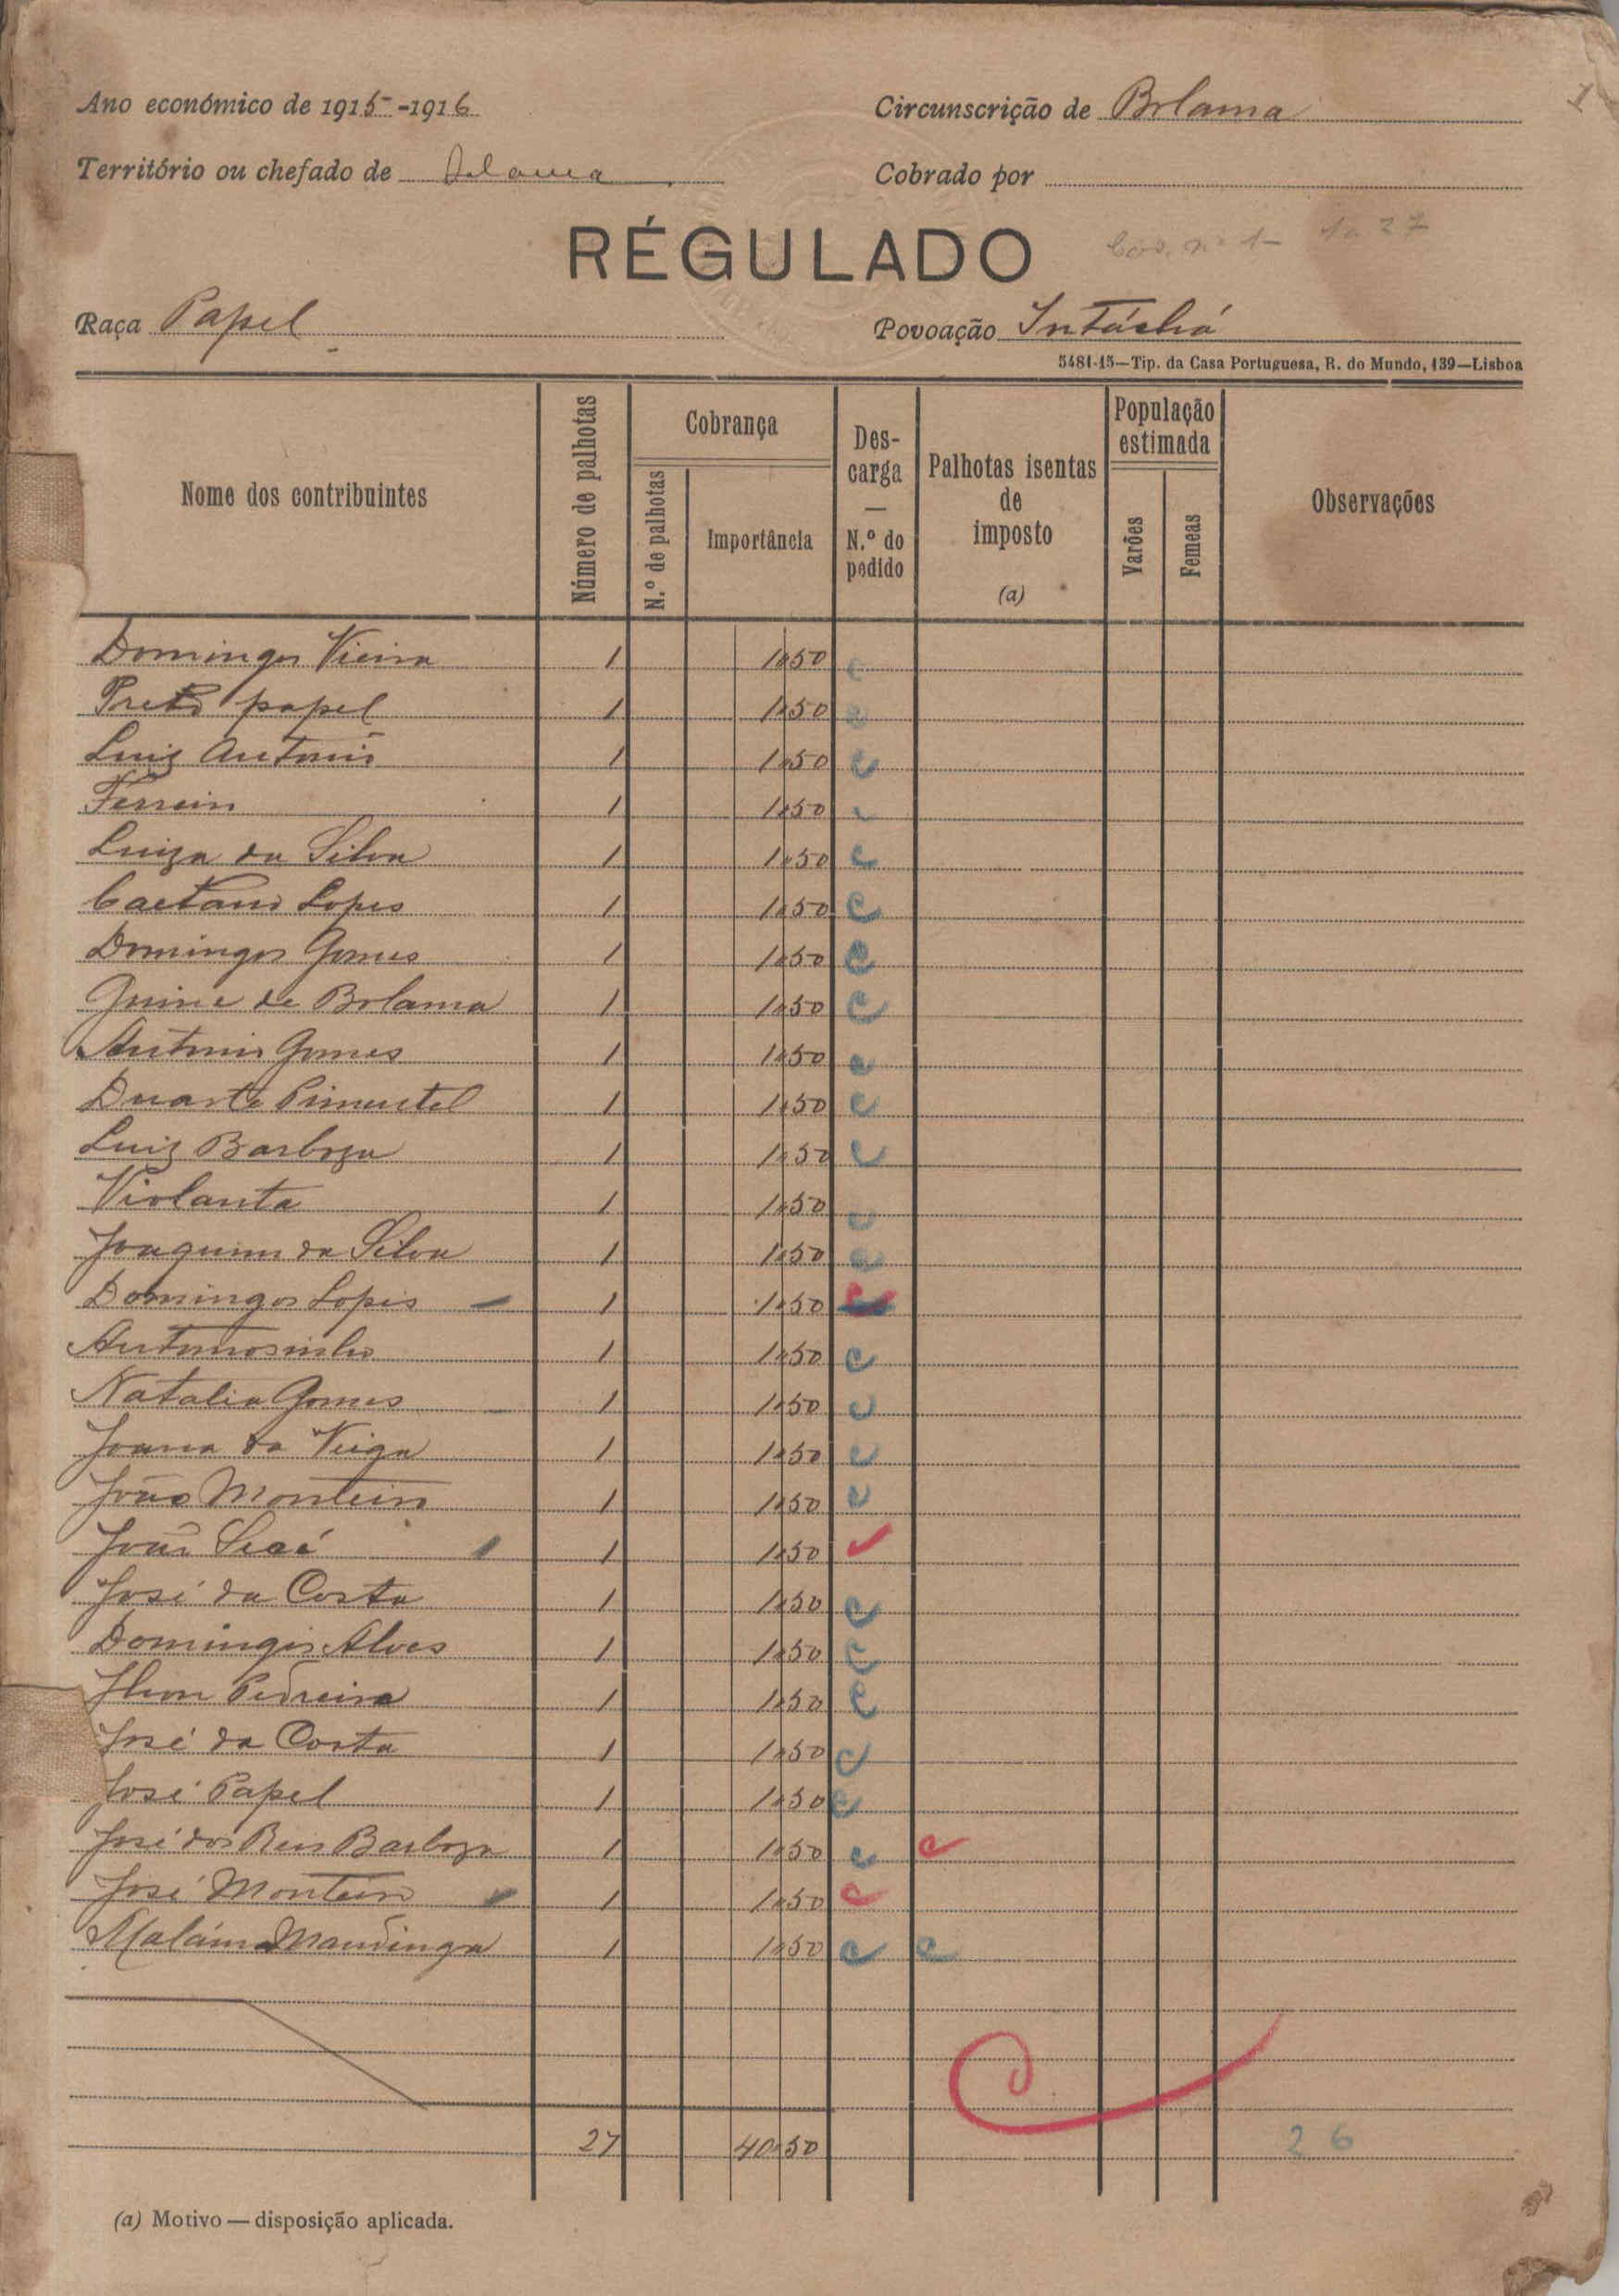 Ano económico de 1915-1916
Circunscrição de Bolama
1
Território ou chefado de Bolama
Cobrado por
RÉGULADO
1 a 27
Raça Papel
Povoação Intáchá
5481-15—Tip. da Casa Portuguesa, R. do Mundo, 139—Lisboa
Nome dos contribuintes
Número de palhotas
Cobrança
N.º de palhotas
Importância
Des-
carga
—
N.º do
pedido
Palhotas isentas
de
imposto
(a)
População
estimada
Varões
Femeas
Observações
Domingos Vieira 1 1$50 c
Preto papel 1 1$50
Luiz Antonio 1 1$50 c
Ferreira 1 1$50 c
Luiza da Silva 1 1$50 c
Caetano Lopes 1 1$50 c
Domingos Gomes 1 1$50 c
de Bolama 1 1$50 c
Antonio Gomes 1 1$50 c
Duarte Pimentel 1 1$50 c
Luiz Barboza 1 1$50 c
Violanta 1 1$50 c
Joaquim da Silva 1 1$50 c
Domingos Lopes 1 1$50
Antoniosinho 1 1$50 c
Natalia Gomes 1 1$50 c
Joana da Veiga 1 1$50 c
João Monteiro 1 1$50 c
João 1 1$50
José da Costa 1 1$50 c
Domingos Alves 1 1$50 c
Pedreira 1 1$50 c
José da Costa 1 1$50 c
José Papel 1 1$50 c
José dos Reis Barboza 1 1$50 c c
José Monteiro 1 1$50 c
Malám Mandinga 1 1$50 c c
27 40$50 26
(a) Motivo — disposição aplicada.